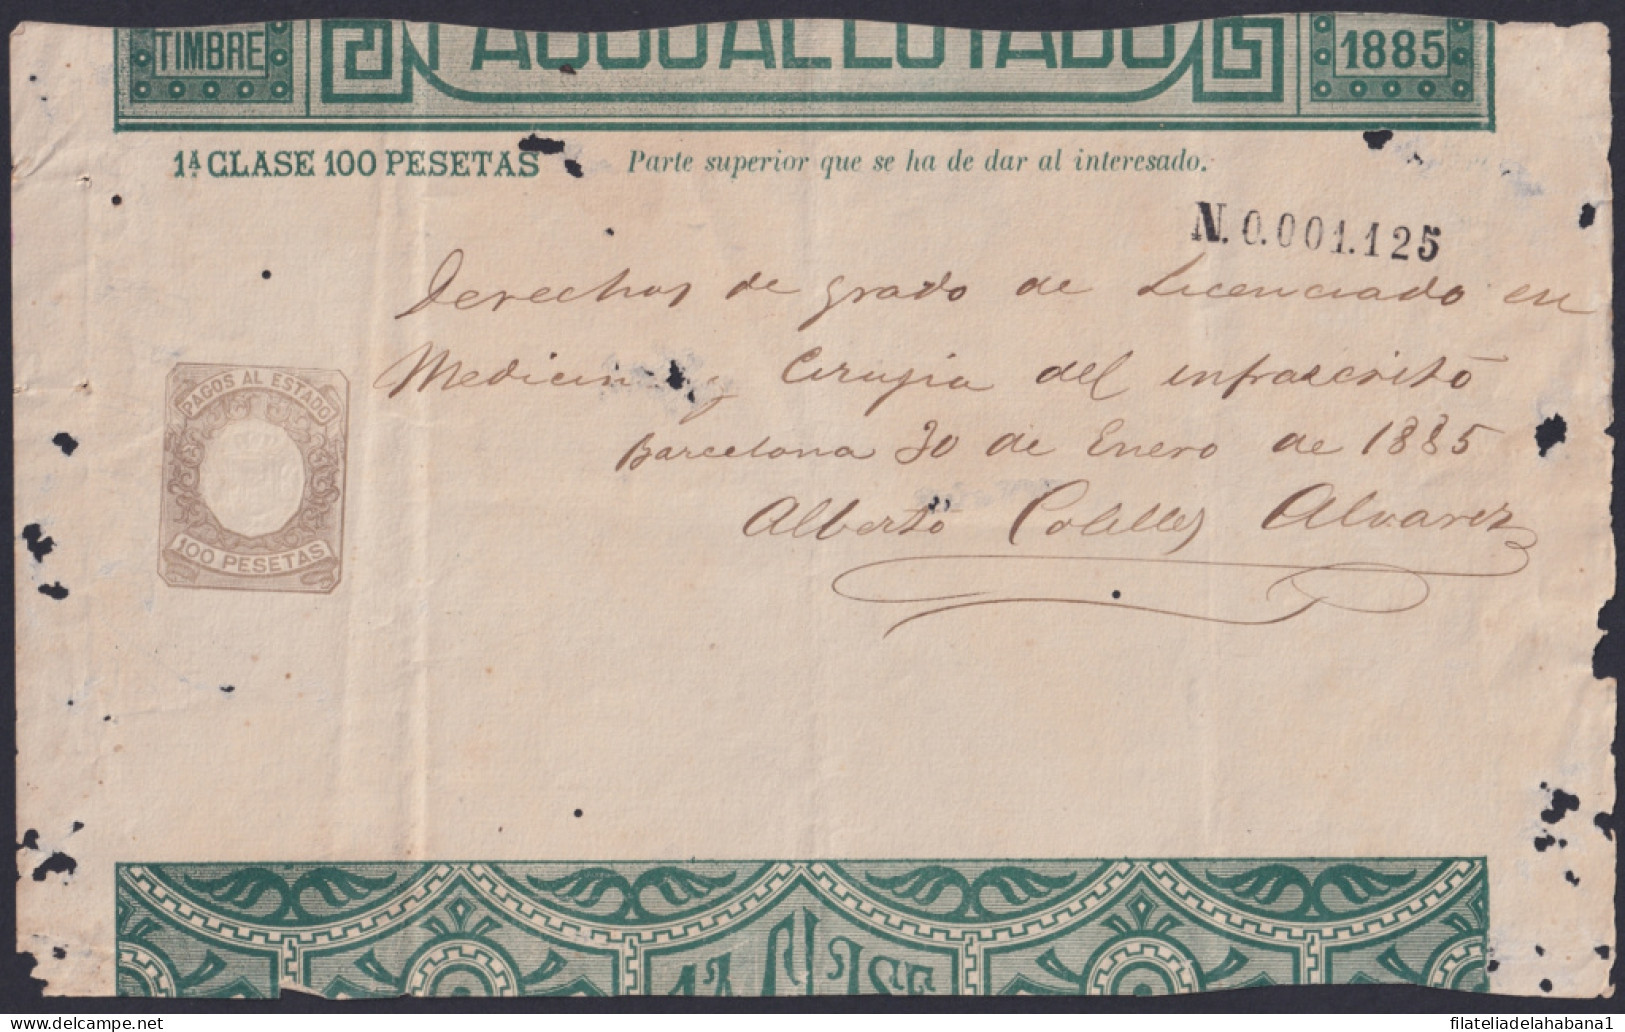 TIMBRE PAGOS AL ESTADO 1885
1ª CLASE 100 PESETAS Parte superior que se ha de dar al interesado.
N. 0.001.125
Derechos de grado de Licenciado en
Medicin y Cirujia del infraescrito
Barcelona 30 de Enero de 1885
Alberto Alvarez
PAGOS AL ESTADO
100 PESETAS
1ª CLASE
delcampe.net
filateliadelahabana1